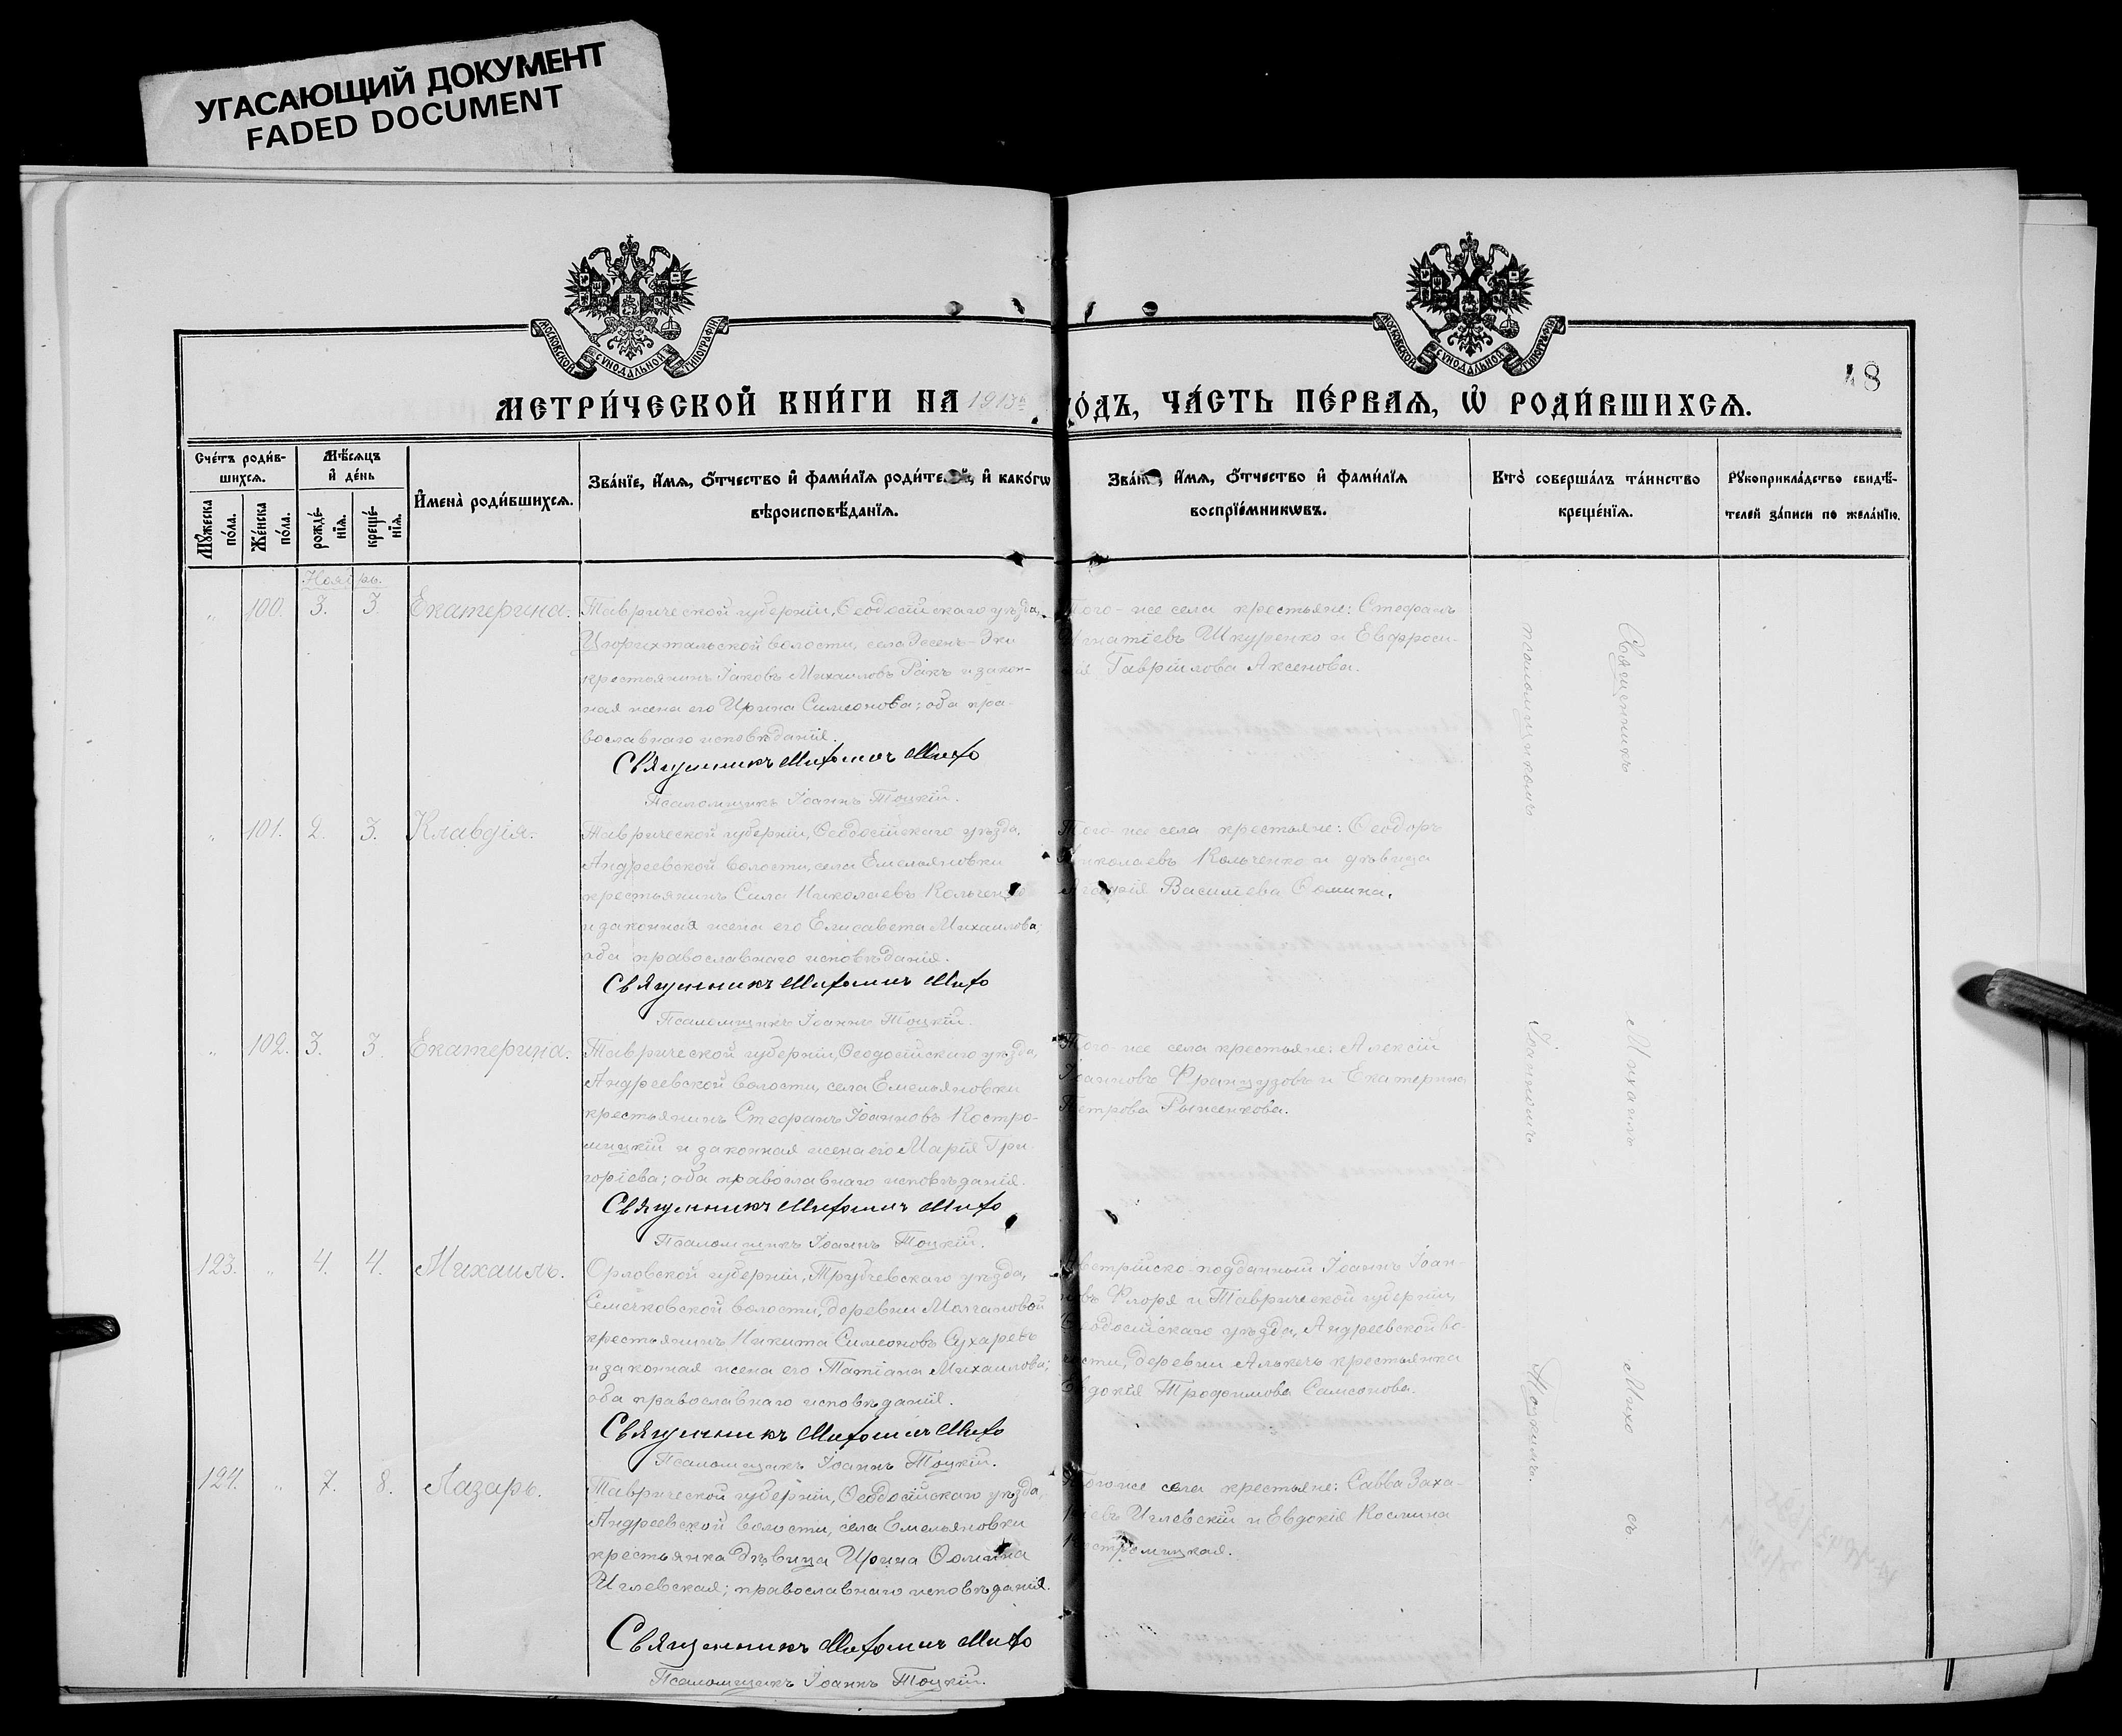 УГАСАЮЩИЙ ДОКУМЕНТ
FADED DOCUMENT
МОСКОВСКОЙ СУНОДАЛЬНОЙ ТИПОГРАФІИ
МОСКОВСКОЙ СУНОДАЛЬНОЙ ТИПОГРАФІИ
48
МЕТРИ́ЧЕСКОЙ КНИ́ГИ НА 1913й
го́дъ, ЧА́СТЬ ПЕ́РВАѦ, Ѡ҆ РОДИ́ВШИХСѦ.
Сче́тъ роди́в-
шихсѧ.
Мꙋ́жеска по́ла.
Же́нска по́ла.
Мѣ́сѧцъ
и҆ де́нь
рожде́-
нїѧ.
креще́-
нїѧ.
И҆мена̀ роди́вшихсѧ.
Зва́нїе, и҆́мѧ, ѻ҆́тчество и҆ фами́лїѧ роди́телей, и҆ како́гѡ
вѣроисповѣ́данїѧ.
Зва́нїе, и҆́мѧ, ѻ҆́тчество и҆ фами́лїѧ
воспрїе́мникѡвъ.
Кто̀ соверша́лъ та́инство
креще́нїѧ.
Рꙋкоприкла́дство свидѣ́-
телей за́писи по жела́нїю.
Ноябрь.
„ 100. 3. 3. Екатерина.
Таврической губерніи, Ѳеодосійскаго уѣзда,
Цюрихтальской волости, села Эсенъ-Эки
крестьянинъ Іаковъ Михаиловъ Ракъ и закон-
ная жена его Ирина Симеонова; оба пра-
вославнаго исповѣданія.
Священникъ Михаилъ Михо
Псаломщикъ Іоаннъ Тоцкій.
Того-же села крестьяне: Стефанъ
Игнатіевъ Шкуренко и Евфроси-
нія Гавріилова Аксенова.
„ 101. 2. 3. Клавдія.
Таврической губерніи, Ѳеодосійскаго уѣзда,
Андреевской волости, села Емельяновки
крестьянинъ Сила Николаевъ Кольченко
и законная жена его Елисавета Михаилова;
оба православнаго исповѣданія.
Священникъ Михаилъ Михо
Псаломщикъ Іоаннъ Тоцкій.
Того-же села крестьяне: Ѳеодоръ
Николаевъ Кольченко и дѣвица
Васильева Ѳомина.
„ 102. 3. 3. Екатерина.
Таврической губерніи, Ѳеодосійскаго уѣзда,
Андреевской волости, села Емельяновки
крестьянинъ Стефанъ Іоанновъ Костро-
мицкій и законная жена его Марія Гри-
горіева; оба православнаго исповѣданія.
Священникъ Михаилъ Михо
Псаломщикъ Іоаннъ Тоцкій.
Того-же села крестьяне: Алексій
Іоанновъ Французовъ и Екатерина
Петрова Рыженкова.
123. „ 4. 4. Михаилъ.
Орловской губерніи, Трубчевскаго уѣзда,
Семечковской волости, деревни Молчановой
крестьянинъ Никита Симеоновъ Сухаревъ
и законная жена его Татіана Михаилова;
оба православнаго исповѣданія.
Священникъ Михаилъ Михо
Псаломщикъ Іоаннъ Тоцкій.
Австрійско-подданный Іоаннъ Іоан-
новъ Флоря и Таврической губерніи,
Ѳеодосійскаго уѣзда, Андреевской во-
лости, деревни Алькечь крестьянка
Евдокія Трофимова Самсонова.
124. „ 7. 8. Лазарь.
Таврической губерніи, Ѳеодосійскаго уѣзда,
Андреевской волости, села Емельяновки
крестьянка дѣвица Ирина Ѳомина
Иглевская; православнаго исповѣданія.
Священникъ Михаилъ Михо
Псаломщикъ Іоаннъ Тоцкій.
Того же села крестьяне: Савва Заха-
ріевъ Иглевскій и Евдокія Космина
Костромицкая.
Священникъ Михаилъ Михо съ
псаломщикомъ Іоанномъ Тоцкимъ.